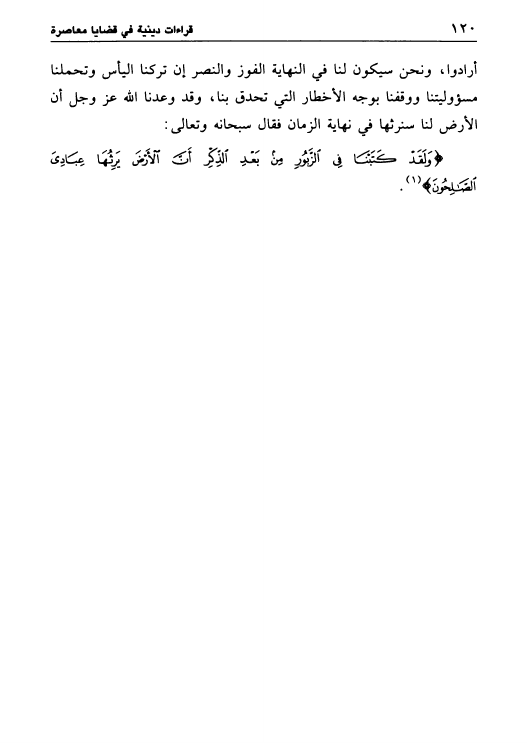 ١٢٠ قراءات دينية في قضايا معاصرة
أرادوا، ونحن سيكون لنا في النهاية الفوز والنصر إن تركنا اليأس وتحملنا
مسؤوليتنا ووقفنا بوجه الأخطار التي تحدق بنا، وقد وعدنا الله عز وجل أن
الأرض لنا سنرثها في نهاية الزمان فقال سبحانه وتعالى:
﴿وَلَقَدْ كَتَبْنَا فِي ٱلزَّبُورِ مِنۢ بَعْدِ ٱلذِّكْرِ أَنَّ ٱلْأَرْضَ يَرِثُهَا عِبَادِىَ
ٱلصَّٰلِحُونَ﴾(١).